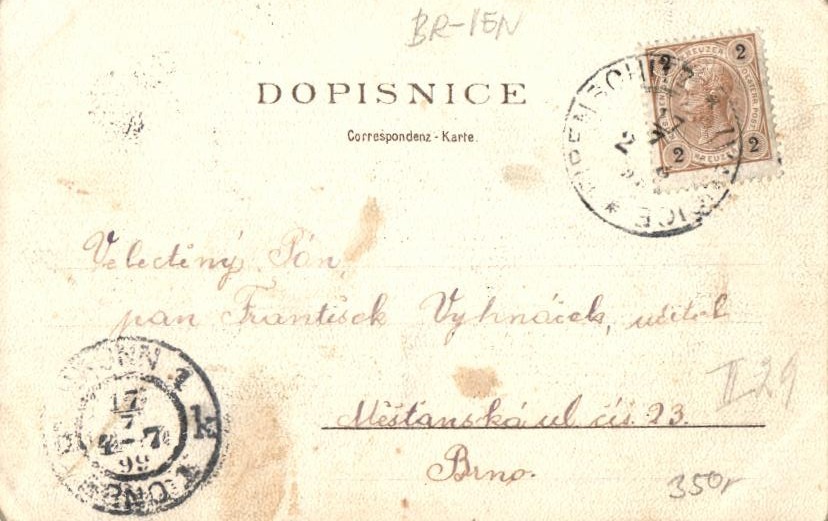 BR-IEN
DOPISNICE
Correspondenz-Karte.
2 KREUZER 2
2 KREUZER 2
EIBENSCHITZ
Velectěný Pán,
pan František Vyhnáček, učitel
Měšťanská ul. čís. 23.
Brno.
II29
350,-
BRUNN 1
17
7
4-7
k
99
BRNO 1